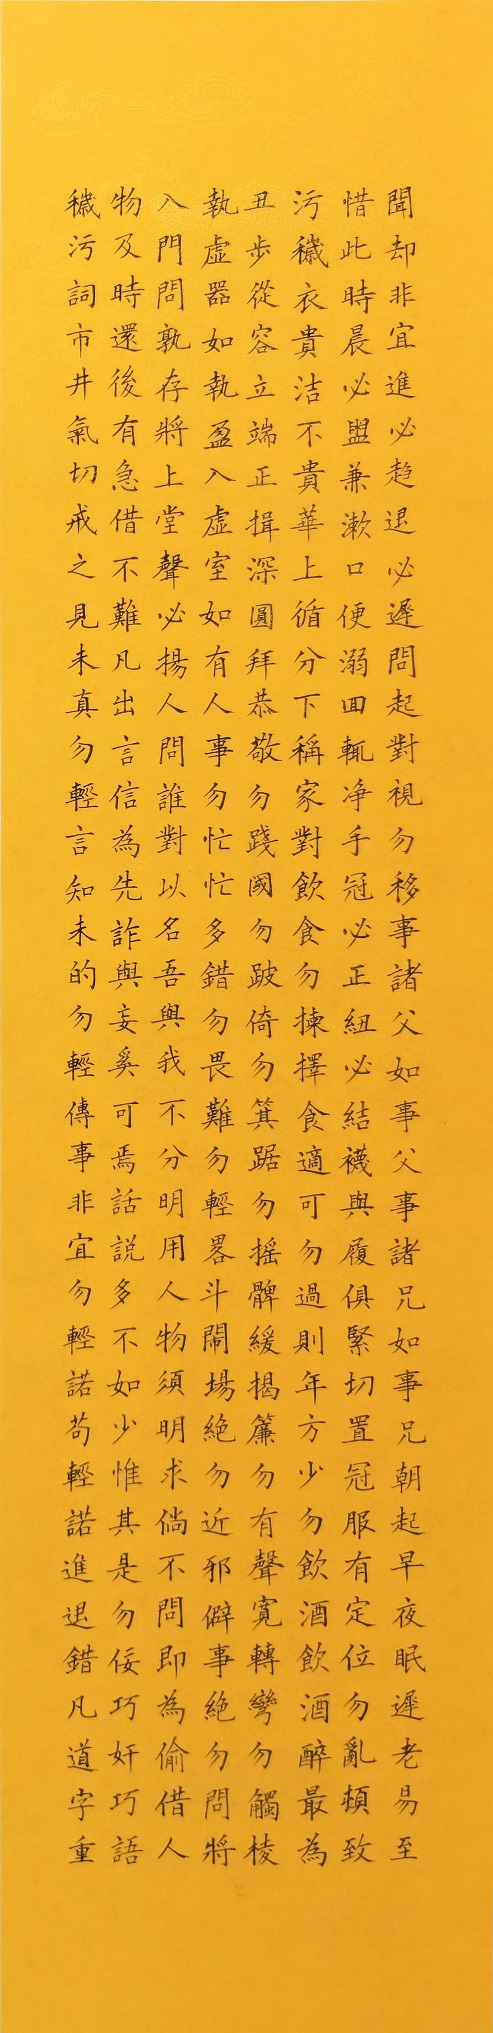 聞却非宜進必趋退必遲問起對視勿移事諸父如事父事諸兄如事兄朝起早夜眠遲老易至
惜此時晨必盥兼漱口便溺回輒净手冠必正紐必結襪與履俱緊切置冠服有定位勿亂頓致
污穢衣貴洁不貴華上循分下稱家對飲食勿揀擇食適可勿過則年方少勿飲酒飲酒醉最為
丑步從容立端正揖深圓拜恭敬勿踐國勿跛倚勿箕踞勿摇髀緩揭簾勿有聲寬轉彎勿觸棱
執虛器如執盈入虛室如有人事勿忙忙多錯勿畏難勿輕畧斗鬧場絶勿近邪僻事絶勿問將
入門問孰存將上堂聲必揚人問誰對以名吾與我不分明用人物須明求倘不問即為偷借人
物及時還後有急借不難凡出言信為先詐與妄奚可焉話説多不如少惟其是勿佞巧奸巧語
穢污詞市井氣切戒之見未真勿輕言知未的勿輕傳事非宜勿輕諾苟輕諾進退錯凡道字重